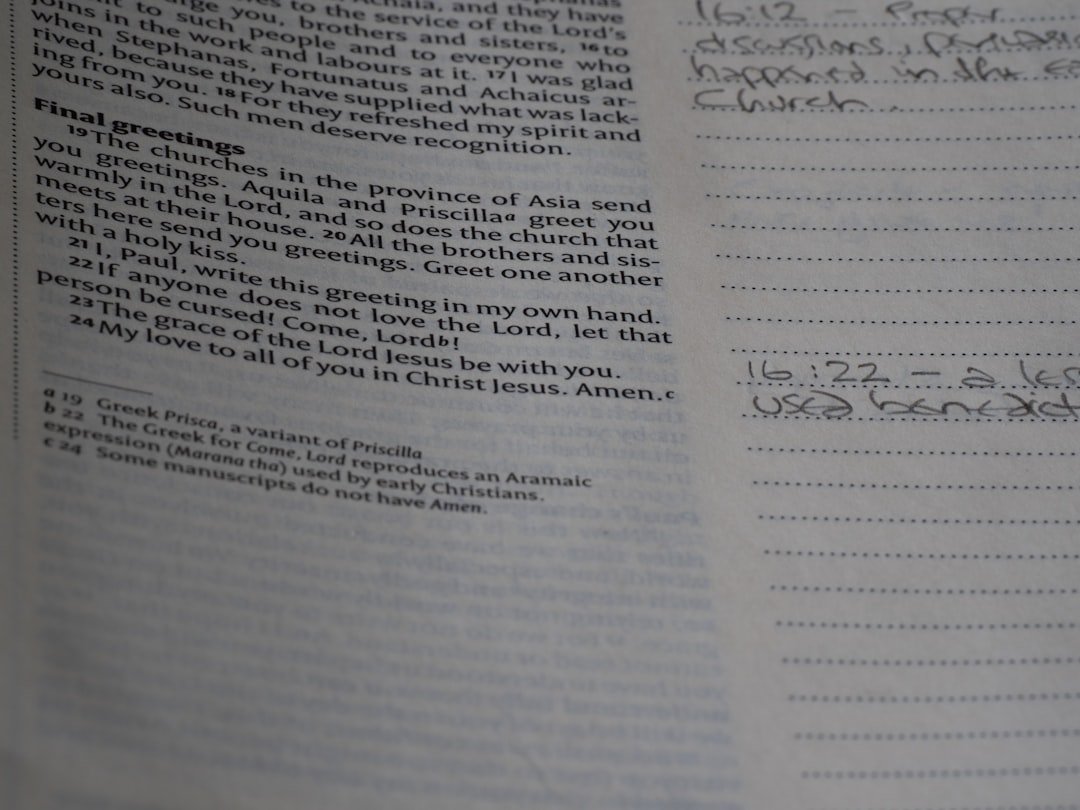 Achaia, and they have
to the service of the Lord's
urge you, brothers and sisters, 16 to
to such people and to everyone who
joins in the work and labours at it. 17 I was glad
when Stephanas, Fortunatus and Achaicus ar-
rived, because they have supplied what was lack-
ing from you. 18 For they refreshed my spirit and
yours also. Such men deserve recognition.
Final greetings
19 The churches in the province of Asia send
you greetings. Aquila and Priscilla a greet you
warmly in the Lord, and so does the church that
meets at their house. 20 All the brothers and sis-
ters here send you greetings. Greet one another
with a holy kiss.
21 I, Paul, write this greeting in my own hand.
22 If anyone does not love the Lord, let that
person be cursed! Come, Lord b!
23 The grace of the Lord Jesus be with you.
24 My love to all of you in Christ Jesus. Amen. c
a 19 Greek Prisca, a variant of Priscilla
b 22 The Greek for Come, Lord reproduces an Aramaic
expression (Marana tha) used by early Christians.
c 24 Some manuscripts do not have Amen.
16:12 –
discussions,
happened in the
Church.
16:22 – a
used